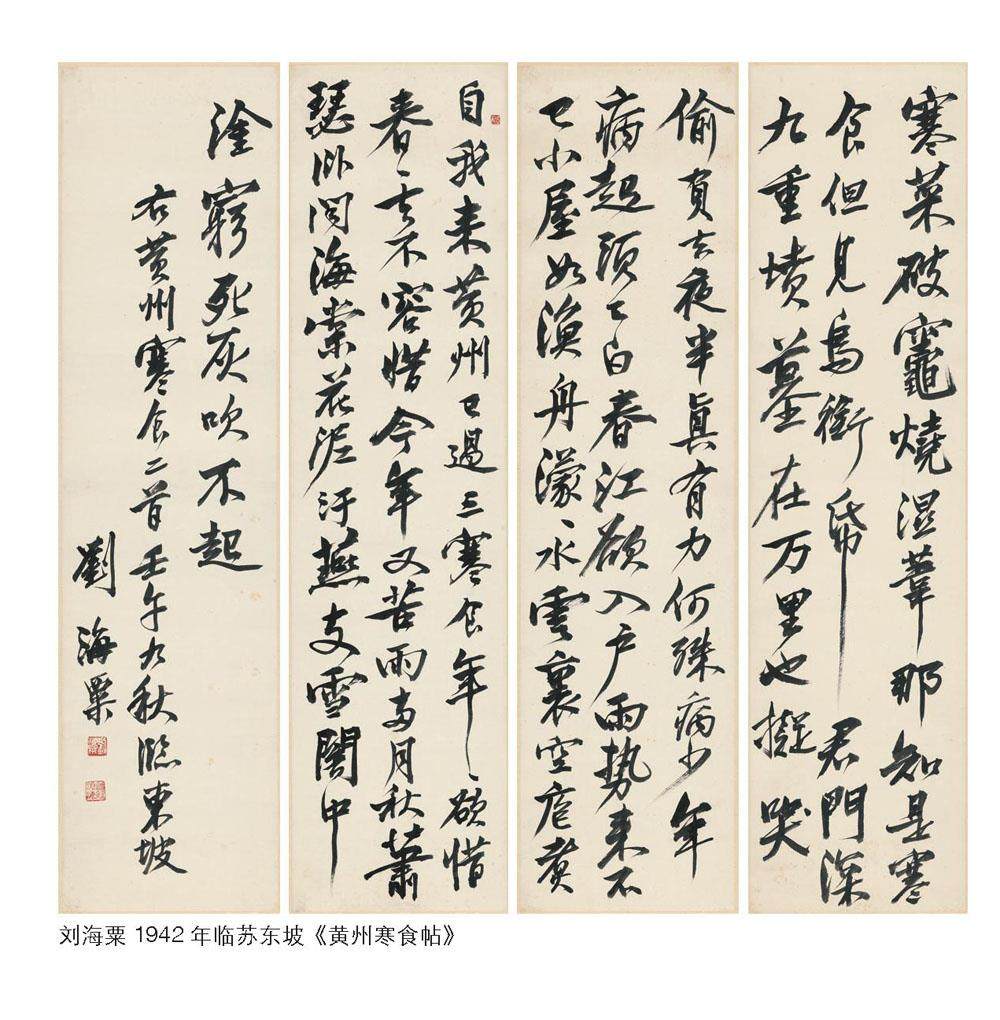 寒菜破竈燒湿葦那知是寒
食但見烏銜帋君門深
九重墳墓在万里也擬哭
偷負去夜半眞有力何殊病少年
病起須已白春江欲入户雨勢来不
已小屋如漁舟濛〻水雲裏空庖煮
自我来黄州已過三寒食年〻欲惜
春〻去不容惜今年又苦雨兩月秋蕭
瑟卧聞海棠花泥汙燕支雪闇中
塗窮死灰吹不起
右黄州寒食二首壬午九秋臨東坡
劉海粟
刘海粟 1942 年临苏东坡《黄州寒食帖》